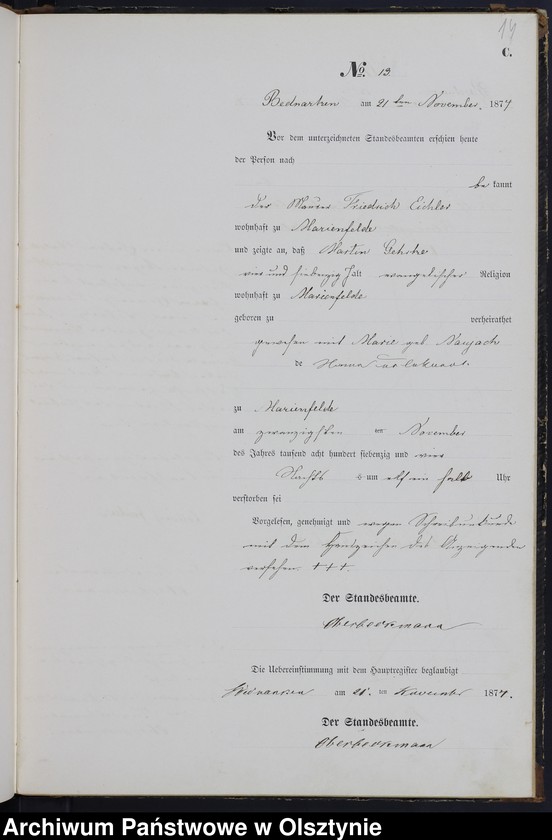 14
C.
No. 13.
Bednarken am 21 ten November. 1874
Vor dem unterzeichneten Standesbeamten erschien heute
der Person nach
be kannt
der Maurer Friedrich Eichler
wohnhaft zu Marienfelde
und zeigte an, daß Martin
vier und siebenzig J alt evangelischer Religion
wohnhaft zu Marienfelde
geboren zu verheirathet
gewesen mit Marie geb
zu Marienfelde
am zwanzigsten ten November
des Jahres tausend acht hundert siebenzig und vier
Nachts um elf ein halb Uhr
verstorben sei
Vorgelesen, genehmigt und wegen Schreibunkunde
mit dem Handzeichen des Anzeigenden
versehen +++.
Der Standesbeamte.
Oberbeckmann
Die Uebereinstimmung mit dem Hauptregister beglaubigt
Bednarken am 21. ten November 1874.
Der Standesbeamte.
Oberbeckmann
Archiwum Państwowe w Olsztynie